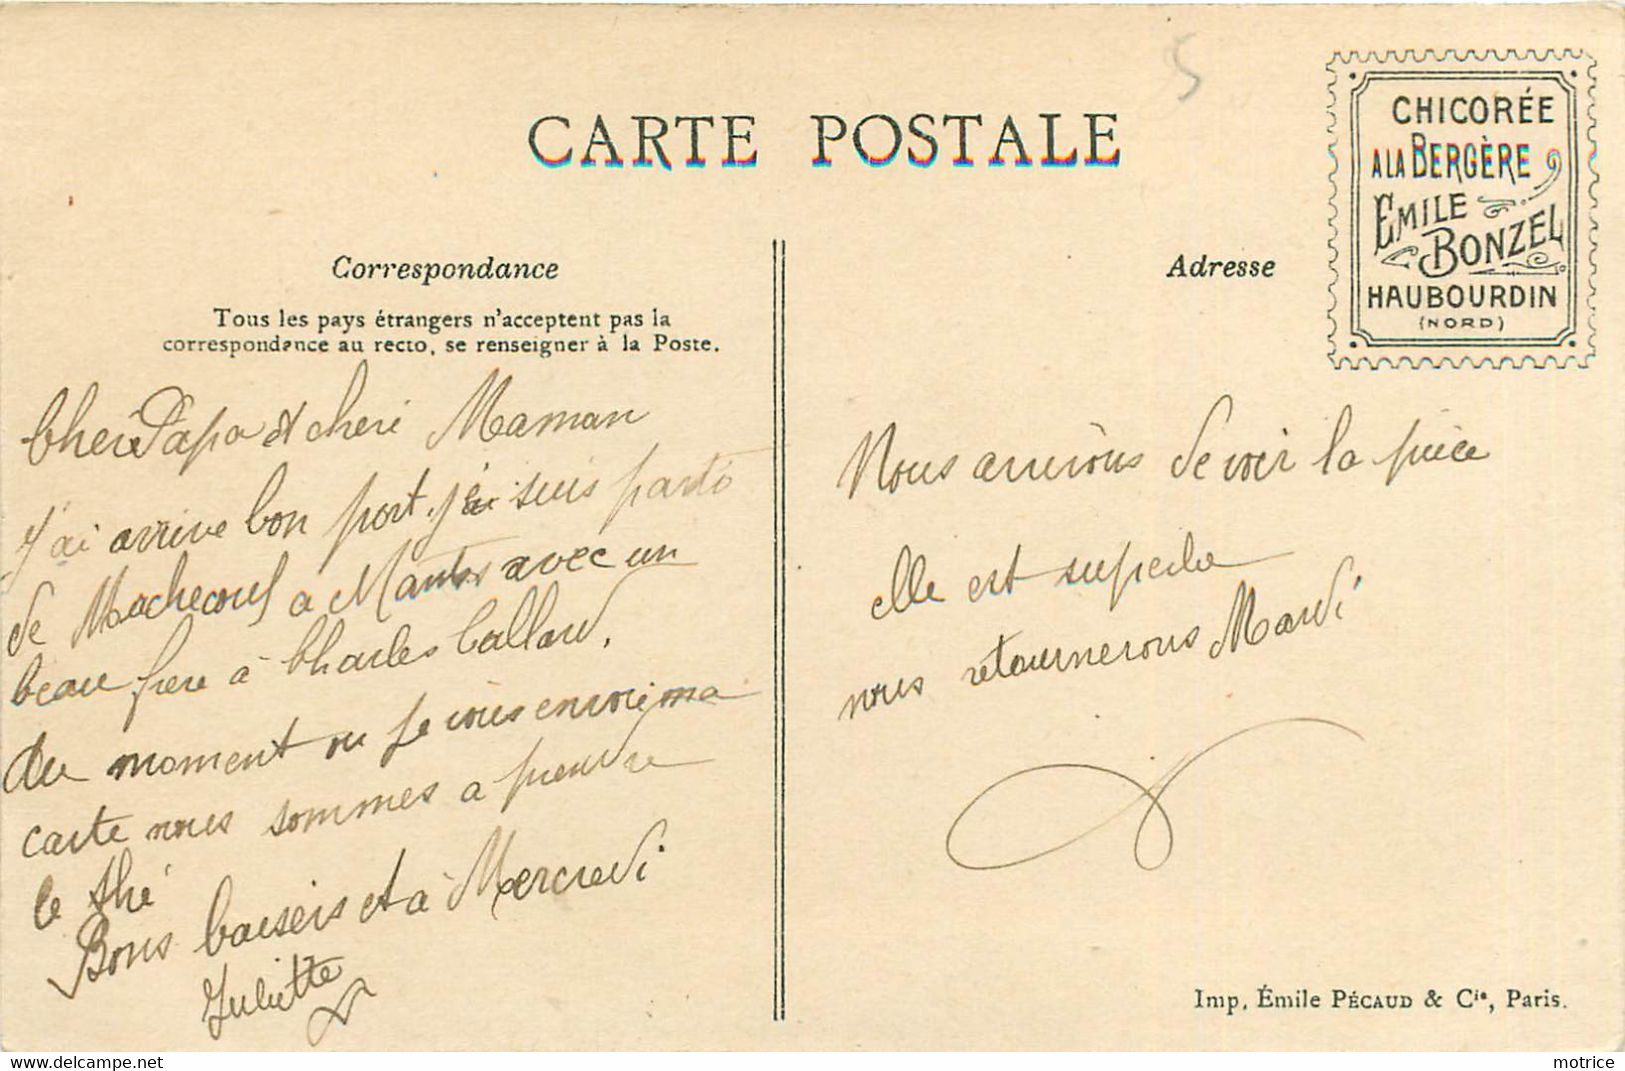 CARTE POSTALE
CHICORÉE
A LA BERGÈRE
EMILE
BONZEL
HAUBOURDIN
(NORD)
Correspondance
Tous les pays étrangers n'acceptent pas la
correspondance au recto, se renseigner à la Poste.
Cheri Papa et cheri Maman
J'ai arrive bon port. j'ai suis parti
de Machecoul a Nantes avec un
beau frere à Charles Callaud.
Au moment ou je vous envoie ma
carte nous sommes a prendre
le thé
Bons baisers et à Mercredi
Juliette
Adresse
Nous arrivons de voir la pièce
elle est superbe
nous retournerons Mardi
Imp. Émile PÉCAUD & Cie, Paris.
delcampe.net
motrice